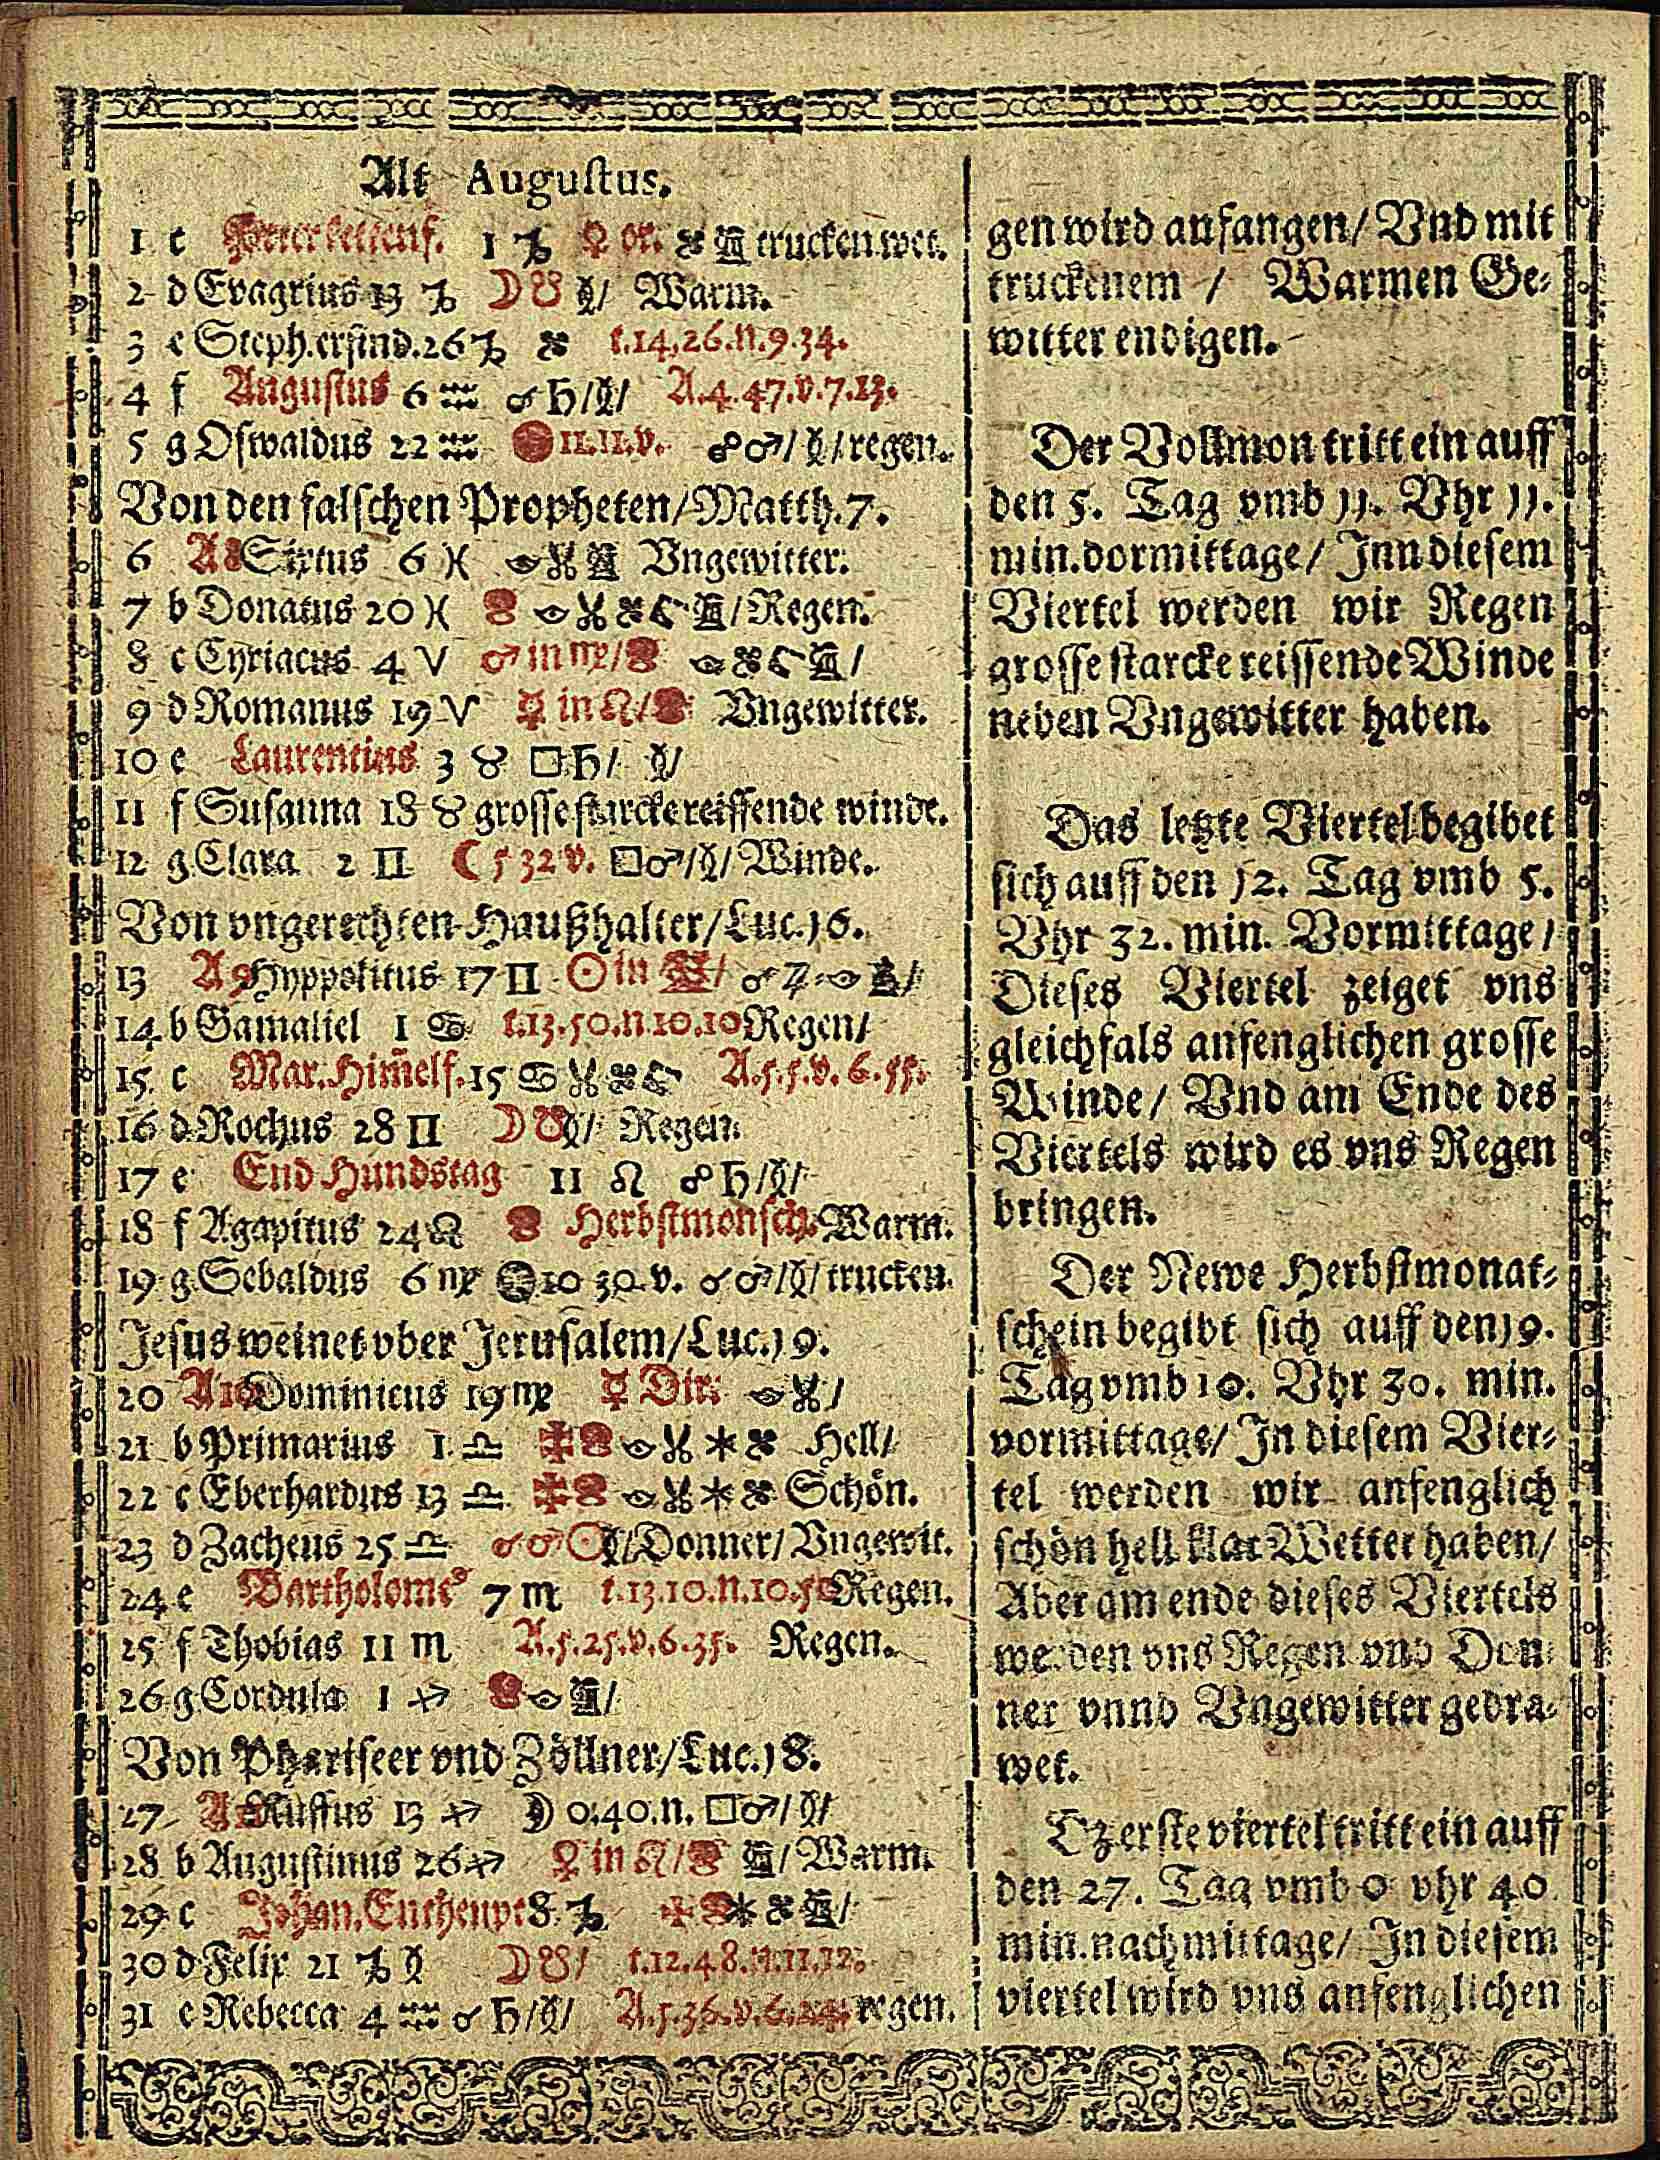 Alt Augustus.
1 c Peter kettenf. 1 ♑ ♀ or. trucken wet.
2 d Evagrius 13 ♑ ☽☋ / Warm.
3 e Steph. erfind. 26 ♑ t.14.26.N.9.34.
4 f Augustus 6 ♒ ☌♄/☿/ A.4.47.v.7.13.
5 g Oswaldus 22 ♒ 11.11.v. ☍♂/☿/ regen.
Von den falschen Propheten/Matth.7.
6 A8 Sixtus 6 ♓ Vngewitter.
7 b Donatus 20 ♓ /Regen.
8 c Cyriacus 4 ♈ ♂ in ♍/ /
9 d Romanus 19 ♈ ☿ in ♌/ Vngewitter.
10 e Laurentius 3 ♉ □♄/ ☿/
11 f Susanna 18 ♉ grosse starcke reissende winde.
12 g Clara 2 ♊ ☾ 5 32 v. □♂/☿/ Winde.
Von vngerechten Haußhalter/Luc.16.
13 A9 Hyppolitus 17 ♊ ☉ in / ☌♃ /
14 b Gamaliel 1 ♋ t.13.50.N.10.10 Regen/
15 c Mar. Him̃elf. 15 ♋ A.5.5.v.6.55.
16 d Rochus 28 ♊ ☽☋ / Regen.
17 e End Hundstag 11 ♌ ☍♄/☿/
18 f Agapitus 24 ♌ Herbstmonsch. Warm.
19 g Sebaldus 6 ♍ 10 30 v. ☌♂/☿/ trucken.
Jesus weinet vber Jerusalem/Luc.19.
20 A10 Dominicus 19 ♍ ☿ Dir. /
21 b Primarius 1 ♎ Hell/
22 c Eberhardus 13 ♎ Schön.
23 d Zacheus 25 ♎ ☌♂☉ /Donner/ Vngewit.
24 e Bartholome 7 ♏ t.13.10.N.10.50 Regen.
25 f Thobias 11 ♏ A.5.25.v.6.35. Regen.
26 g Cordula 1 ♐ /
Von Phariseer vnd Zöllner/Luc.18.
27 Ruffus 13 ♐ ☽ 0.40.n. □♂/☿/
28 b Augustinus 26 ♐ ♀ in ♌/ / Warm.
29 c Johan. Entheupt 8 ♑ /
30 d Felix 21 ♑ ☿ ☽☋/ t.12.48.N.11.12.
31 e Rebecca 4 ♒ ☌♄/☿/ A.5.36.v.6.24. regen.
gen wird anfangen/ Vnd mit
truckenem / Warmen Ge⸗
witter endigen.
Der Vollmon tritt ein auff
den 5. Tag vmb 11. Vhr 11.
min. vormittage/ Inn diesem
Viertel werden wir Regen
grosse starcke reissende Winde
neben Vngewitter haben.
Das letzte Viertel begibet
sich auff den 12. Tag vmb 5.
Vhr 32. min. Vormittage/
Dieses Viertel zeiget vns
gleichfals anfenglichen grosse
Winde/ Vnd am Ende des
Viertels wird es vns Regen
bringen.
Der Newe Herbstmonat⸗
schein begibt sich auff den 19.
Tag vmb 10. Vhr 30. min.
vormittage/ In diesem Vier⸗
tel werden wir anfenglich
schön hell klar Wetter haben/
Aber am ende dieses Viertels
werden vns Regen vnd Don⸗
ner vnnd Vngewitter gedra⸗
wet.
Dz erste viertel tritt ein auff
den 27. Tag vmb 0 vhr 40
min. nachmittage/ In diesem
viertel wird vns anfenglichen